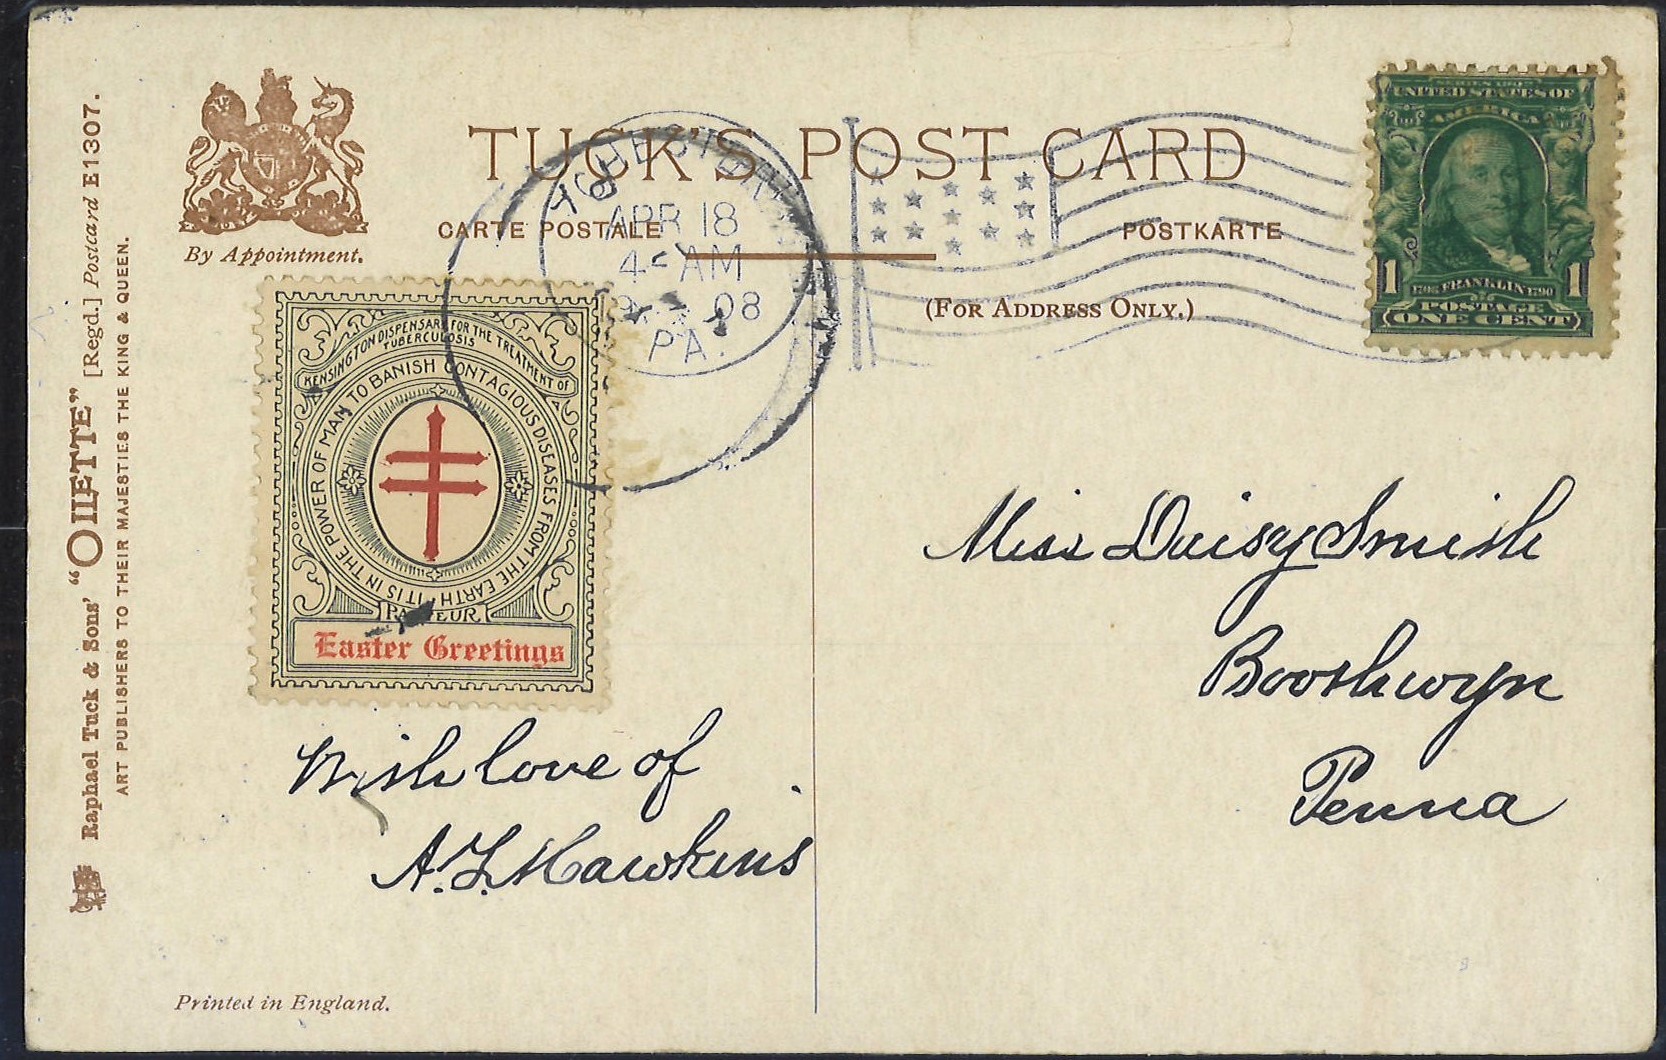 TUCK'S POST CARD
CARTE POSTALE
POSTKARTE
(FOR ADDRESS ONLY.)
By Appointment.
Raphael Tuck & Sons' "OILETTE" [Regd.] Postcard E1307.
ART PUBLISHERS TO THEIR MAJESTIES THE KING & QUEEN.
CHESTER
APR 18
4 - AM
08
PA.
SERIES 1902
UNITED STATES OF
AMERICA
1 1
FRANKLIN 1790
POSTAGE
ONE CENT
KENSINGTON DISPENSARY FOR THE TREATMENT OF
TUBERCULOSIS
IT IS IN THE POWER OF MAN TO BANISH CONTAGIOUS DISEASES FROM THE EARTH
PASTEUR
Easter Greetings
Miss Daisy Smith
Boothwyn
Penna
With love of
A. L. Hawkins
Printed in England.